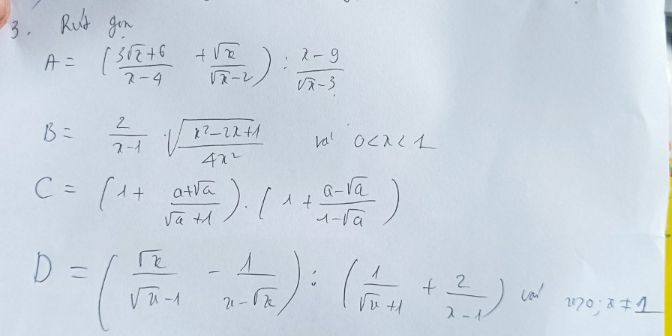 3. Rút gọn
A = (3√x+6 / x-4 + √x / √x-2) : x-9 / √x-3
B = 2 / x-1 . √(x²-2x+1 / 4x²) với 0<x<1
C = (1 + a+√a / √a+1) . (1 + a-√a / 1-√a)
D = (√x / √x-1 - 1 / x-√x) : (1 / √x+1 + 2 / x-1) với x>0; x≠1